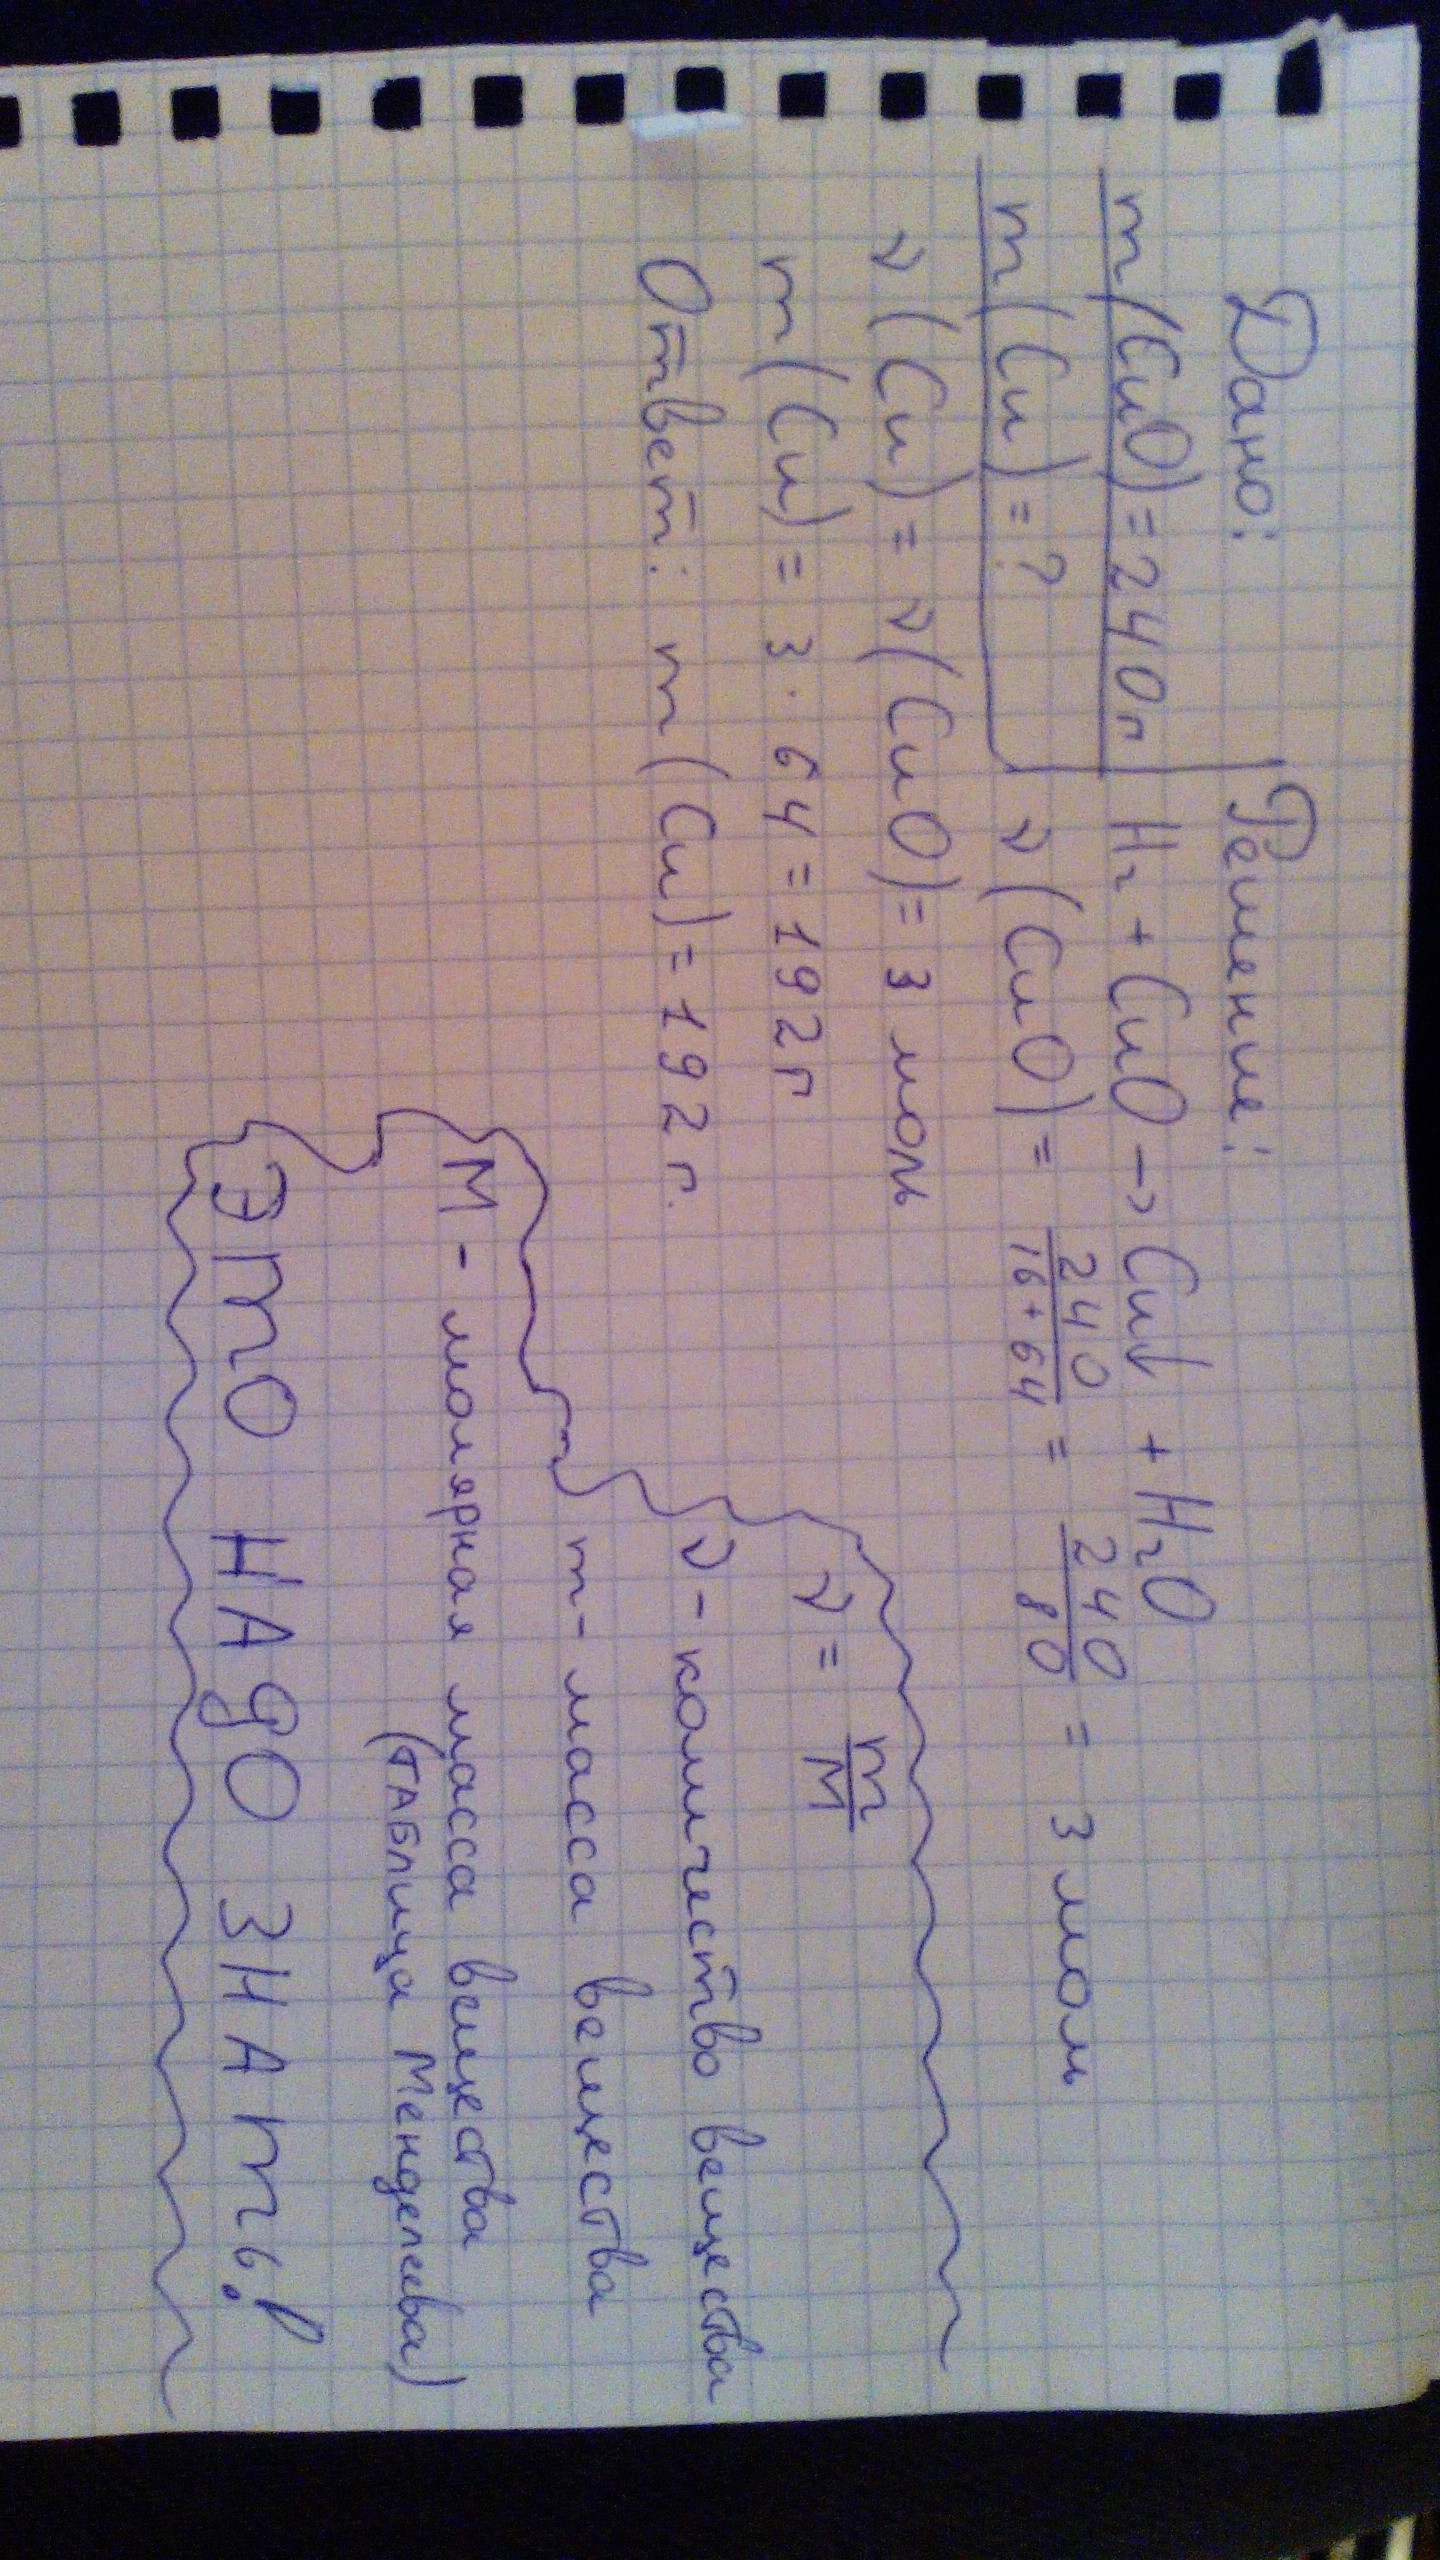 Дано: Решение:
m(CuO)=240г H₂ + CuO → Cu↓ + H₂O
m(Cu)=? ν(CuO) = 240/16+64 = 240/80 = 3 моль
ν(Cu) = ν(CuO) = 3 моль
m(Cu) = 3·64=192г
Ответ: m(Cu)=192 г.
ν = m/M
ν - количество вещества
m - масса вещества
M - молярная масса вещества
(ТАБлица Менделеева)
Это НАдО ЗНАть!